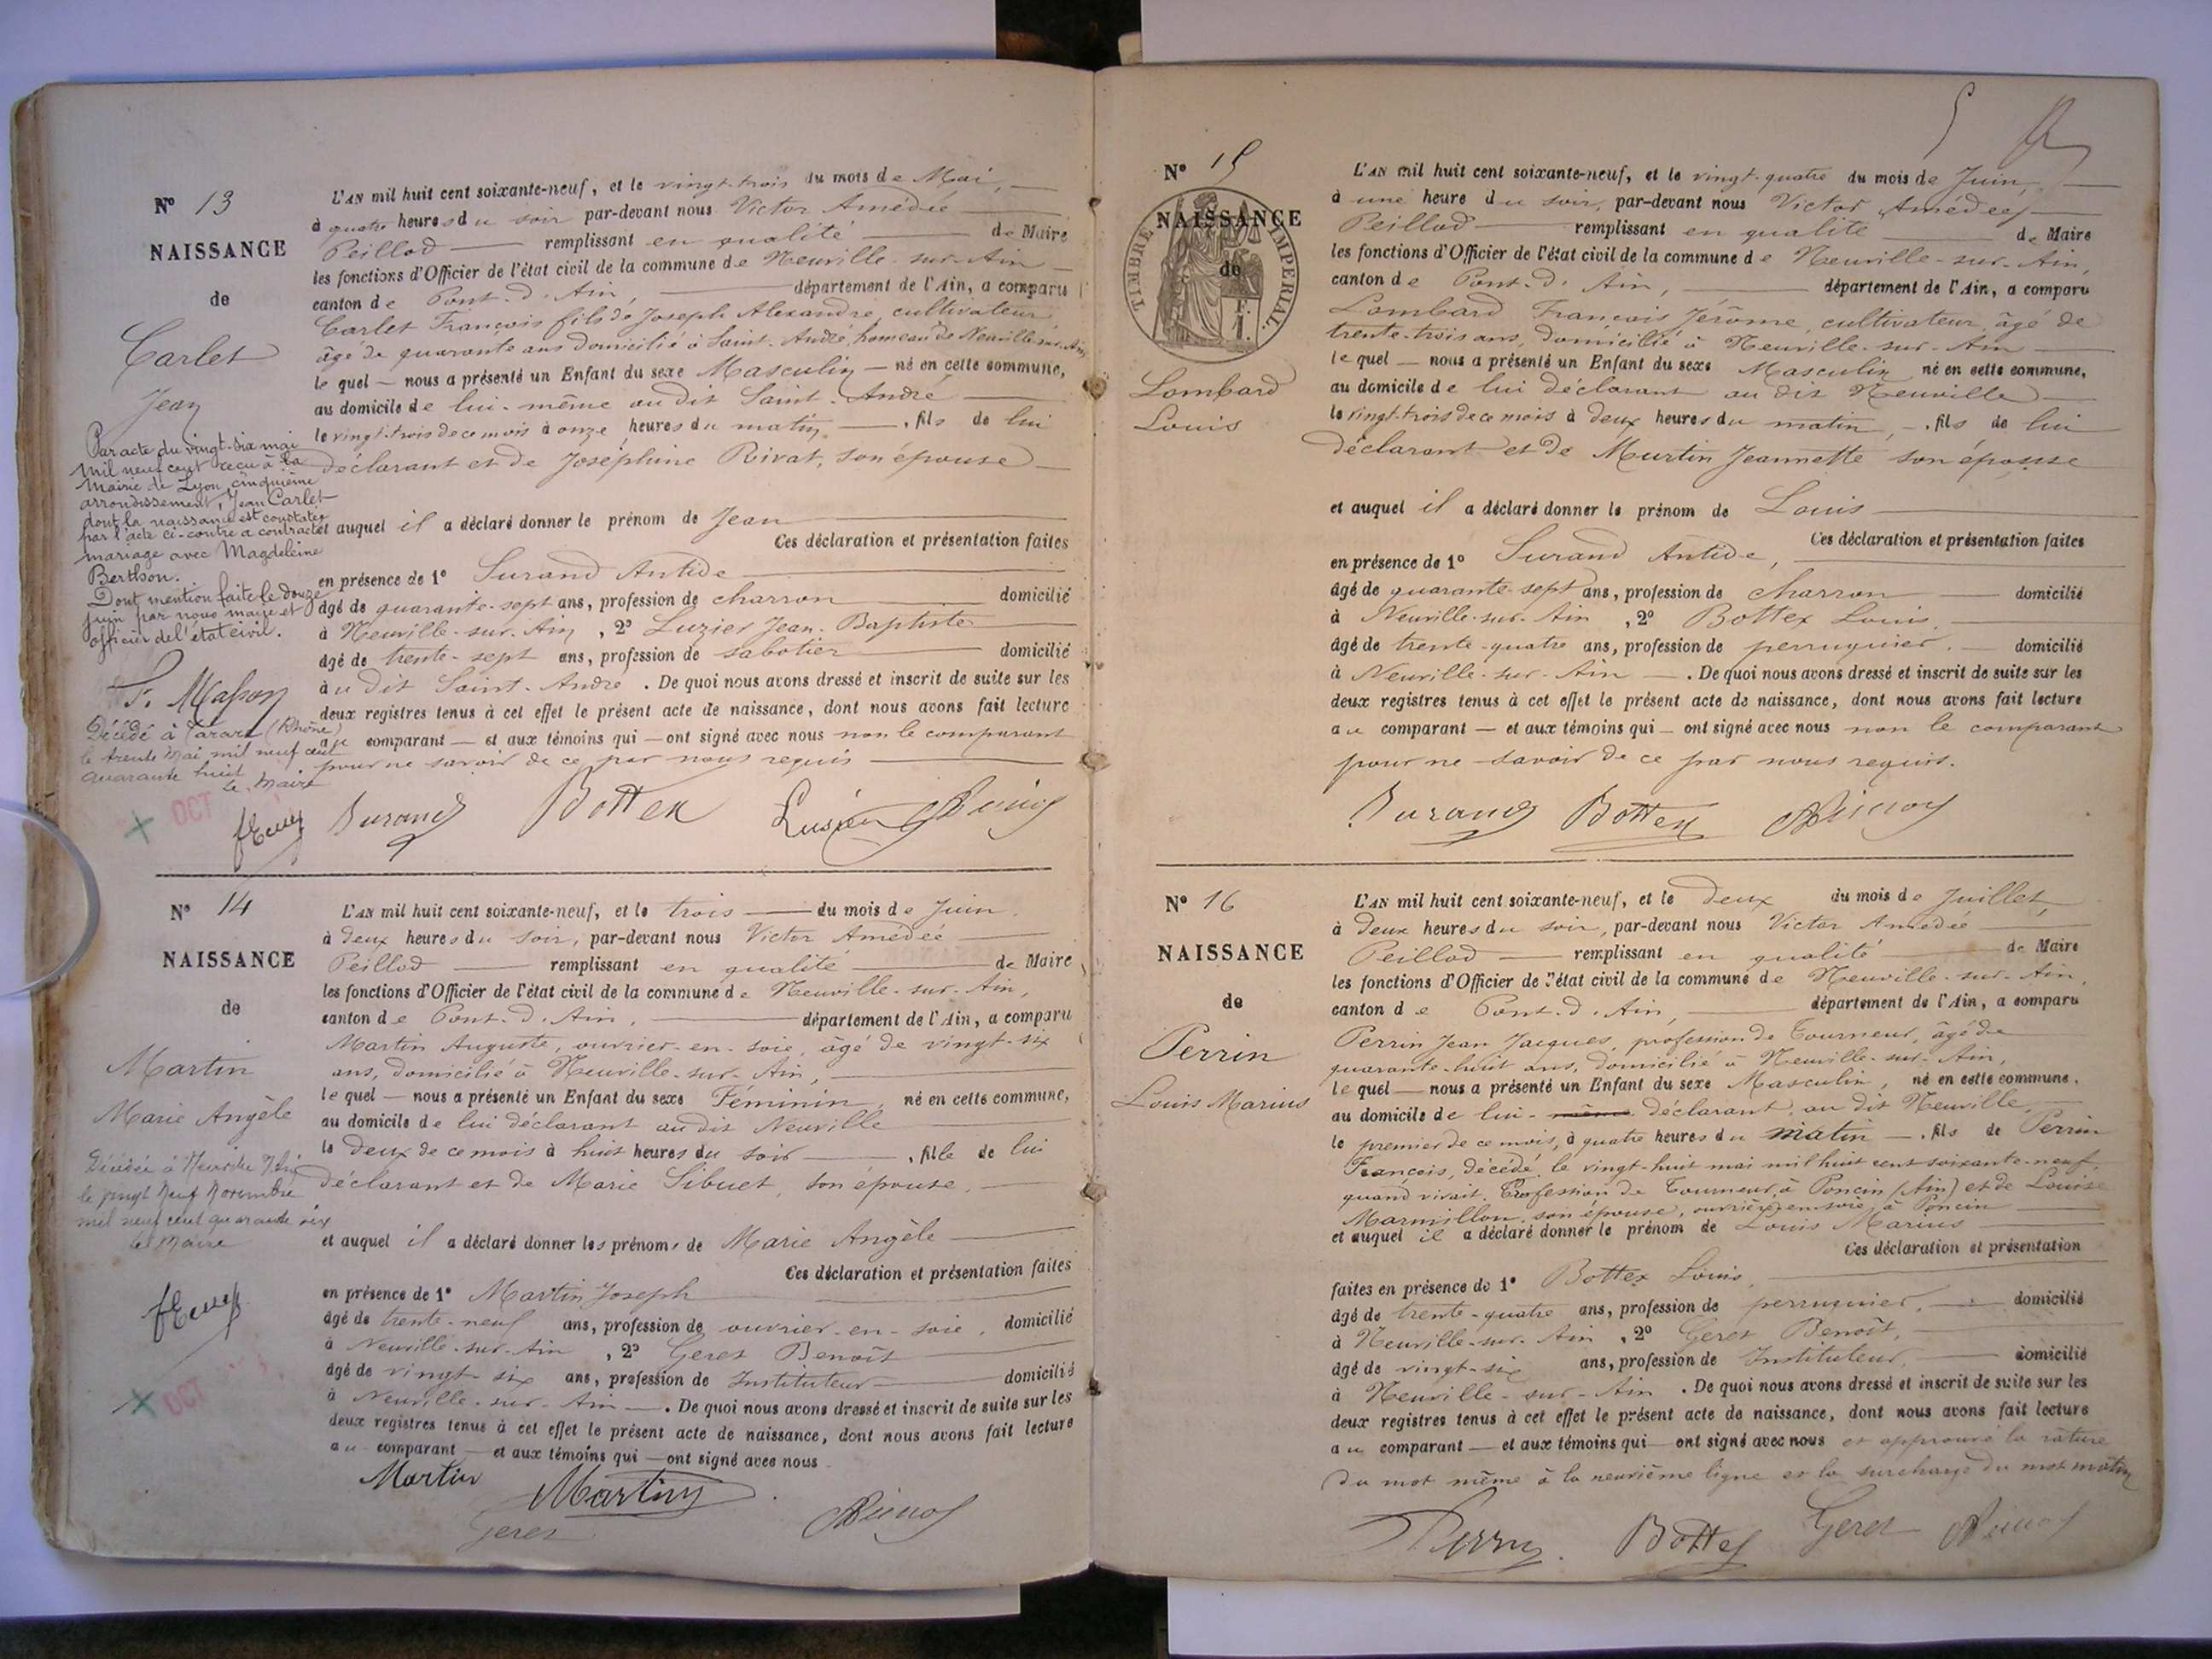 N° 13
NAISSANCE
de
Carlet
Jean
Par acte du vingt-six mai
mil neuf cent reçu à la
Mairie de Lyon, cinquième
arrondissement, Jean Carlet
dont la naissance est constatée
par l'acte ci-contre a contracté
mariage avec Magdeleine
Berthon.
Dont mention faite le douze
juin par nous maire et
officier de l'état civil.
F. Masson
Décédé à Tarare (Rhône)
le trente Mai mil neuf cent
quarante huit
Le Maire
OCT
L'AN mil huit cent soixante-neuf, et le vingt-trois du mois de Mai,
à quatre heures du soir par-devant nous Victor Amédée
Peillod remplissant en qualité de Maire
les fonctions d'Officier de l'état civil de la commune de Neuville-sur-Ain
canton de Pont-d'Ain, département de l'Ain, a comparu
Carlet François fils de Joseph Alexandre, cultivateur,
âgé de quarante ans domicilié à Saint-André, hameau de Neuville-sur-Ain,
lequel nous a présenté un Enfant du sexe Masculin né en cette commune,
au domicile de lui-même au dit Saint-André
le vingt-trois de ce mois à onze heures du matin, fils de lui
déclarant et de Joséphine Rivat, son épouse
et auquel il a déclaré donner le prénom de Jean
Ces déclaration et présentation faites
en présence de 1° Durand Antide
âgé de quarante-sept ans, profession de charron domicilié
à Neuville-sur-Ain, 2° Luzier Jean-Baptiste
âgé de trente-sept ans, profession de sabotier domicilié
au dit Saint-André. De quoi nous avons dressé et inscrit de suite sur les
deux registres tenus à cet effet le présent acte de naissance, dont nous avons fait lecture
au comparant et aux témoins qui ont signé avec nous non le comparant
pour ne savoir de ce par nous requis
Durand Bottex
N° 14
NAISSANCE
de
Martin
Marie Angèle
Décédée à Neuville s/Ain
le vingt neuf Novembre
mil neuf cent quarante six
Le Maire
OCT
L'AN mil huit cent soixante-neuf, et le trois du mois de Juin,
à deux heures du soir, par-devant nous Victor Amédée
Peillod remplissant en qualité de Maire
les fonctions d'Officier de l'état civil de la commune de Neuville-sur-Ain,
canton de Pont-d'Ain, département de l'Ain, a comparu
Martin Auguste, ouvrier-en-soie, âgé de vingt-six
ans, domicilié à Neuville-sur-Ain,
lequel nous a présenté un Enfant du sexe Féminin, né en cette commune,
au domicile de lui déclarant au dit Neuville
le deux de ce mois à huit heures du soir, fille de lui
déclarant et de Marie Sibuet, son épouse,
et auquel il a déclaré donner les prénoms de Marie Angèle
Ces déclaration et présentation faites
en présence de 1° Martin Joseph
âgé de trente-neuf ans, profession de ouvrier-en-soie, domicilié
à Neuville-sur-Ain, 2° Geret Benoît
âgé de vingt-six ans, profession de Instituteur domicilié
à Neuville-sur-Ain. De quoi nous avons dressé et inscrit de suite sur les
deux registres tenus à cet effet le présent acte de naissance, dont nous avons fait lecture
au comparant et aux témoins qui ont signé avec nous.
Martin Martin
Geret
5
N° 15
NAISSANCE
de
TIMBRE IMPERIAL.
Lombard
Louis
L'AN mil huit cent soixante-neuf, et le vingt-quatre du mois de Juin,
à une heure du soir, par-devant nous Victor Amédée
Peillod remplissant en qualité de Maire
les fonctions d'Officier de l'état civil de la commune de Neuville-sur-Ain,
canton de Pont-d'Ain, département de l'Ain, a comparu
Lombard François Jérôme, cultivateur, âgé de
trente-trois ans, domicilié à Neuville-sur-Ain
lequel nous a présenté un Enfant du sexe Masculin né en cette commune,
au domicile de lui déclarant au dit Neuville
le vingt-trois de ce mois à deux heures du matin, fils de lui
déclarant et de Murtin Jeannette son épouse
et auquel il a déclaré donner le prénom de Louis
Ces déclaration et présentation faites
en présence de 1° Durand Antide,
âgé de quarante-sept ans, profession de charron domicilié
à Neuville-sur-Ain, 2° Bottex Louis,
âgé de trente-quatre ans, profession de perruquier, domicilié
à Neuville-sur-Ain. De quoi nous avons dressé et inscrit de suite sur les
deux registres tenus à cet effet le présent acte de naissance, dont nous avons fait lecture
au comparant et aux témoins qui ont signé avec nous non le comparant
pour ne savoir de ce par nous requis.
Durand Bottex
N° 16
NAISSANCE
de
Perrin
Louis Marius
L'AN mil huit cent soixante-neuf, et le deux du mois de Juillet,
à deux heures du soir, par-devant nous Victor Amédée
Peillod remplissant en qualité de Maire
les fonctions d'Officier de l'état civil de la commune de Neuville-sur-Ain,
canton de Pont-d'Ain, département de l'Ain, a comparu
Perrin Jean Jacques, profession de Tourneur, âgé de
quarante-huit ans, domicilié à Neuville-sur-Ain,
lequel nous a présenté un Enfant du sexe Masculin, né en cette commune.
au domicile de lui-même déclarant, au dit Neuville,
le premier de ce mois, à quatre heures du matin, fils de Perrin
François, décédé le vingt-huit mai mil huit cent soixante-neuf
quand vivait, Profession de Tourneur, à Poncin (Ain) et de Louise
Marmillon, son épouse, ouvrière-en-soie, à Poncin
et auquel il a déclaré donner le prénom de Louis Marius
Ces déclaration et présentation
faites en présence de 1° Bottex Louis,
âgé de trente-quatre ans, profession de perruquier, domicilié
à Neuville-sur-Ain, 2° Geret Benoît,
âgé de vingt-six ans, profession de Instituteur, domicilié
à Neuville-sur-Ain. De quoi nous avons dressé et inscrit de suite sur les
deux registres tenus à cet effet le présent acte de naissance, dont nous avons fait lecture
au comparant et aux témoins qui ont signé avec nous et approuvé la rature
du mot même à la neuvième ligne et la surcharge du mot matin
Perrin Bottex Geret